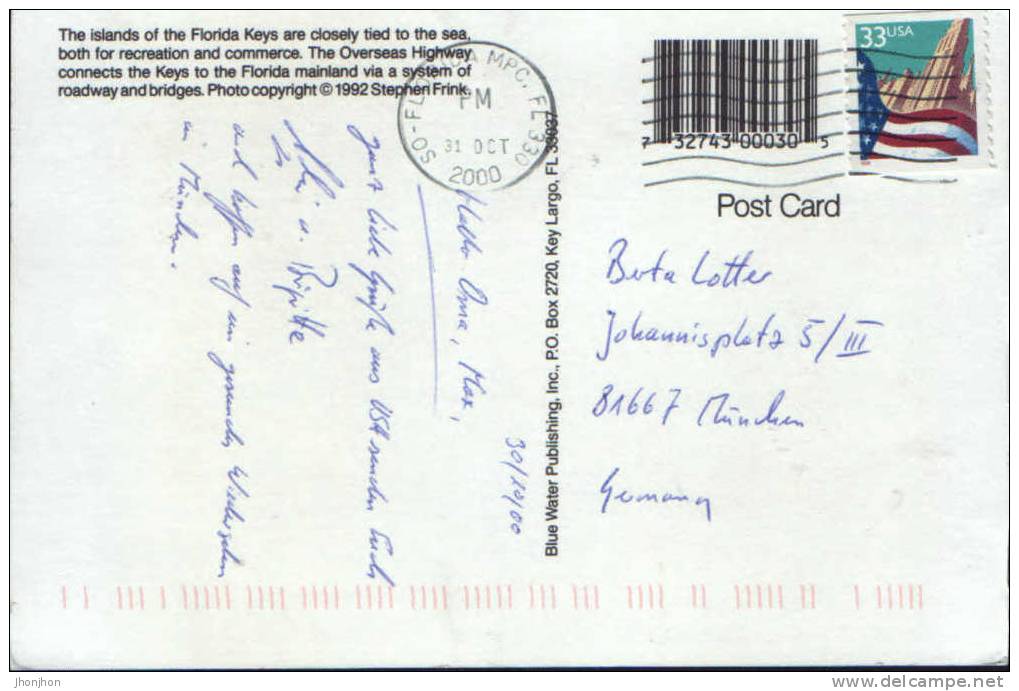 The islands of the Florida Keys are closely tied to the sea,
both for recreation and commerce. The Overseas Highway
connects the Keys to the Florida mainland via a system of
roadway and bridges. Photo copyright © 1992 Stephen Frink.
SO-FLORIDA MPC, FL 330
PM
31 OCT
2000
33USA
7 32743 00030 5
Post Card
Berta Lotter
Johannisplatz 5/III
81667 München
Germany
Blue Water Publishing, Inc., P.O. Box 2720, Key Largo, FL 33037
30/10/00
Hallo Oma, Max,
ganz liebe Grüße aus USA senden Euch
u. Brigitte
und hoffen auf ein gesundes Wiedersehen
in München.
jhonjhon
www.delcampe.net